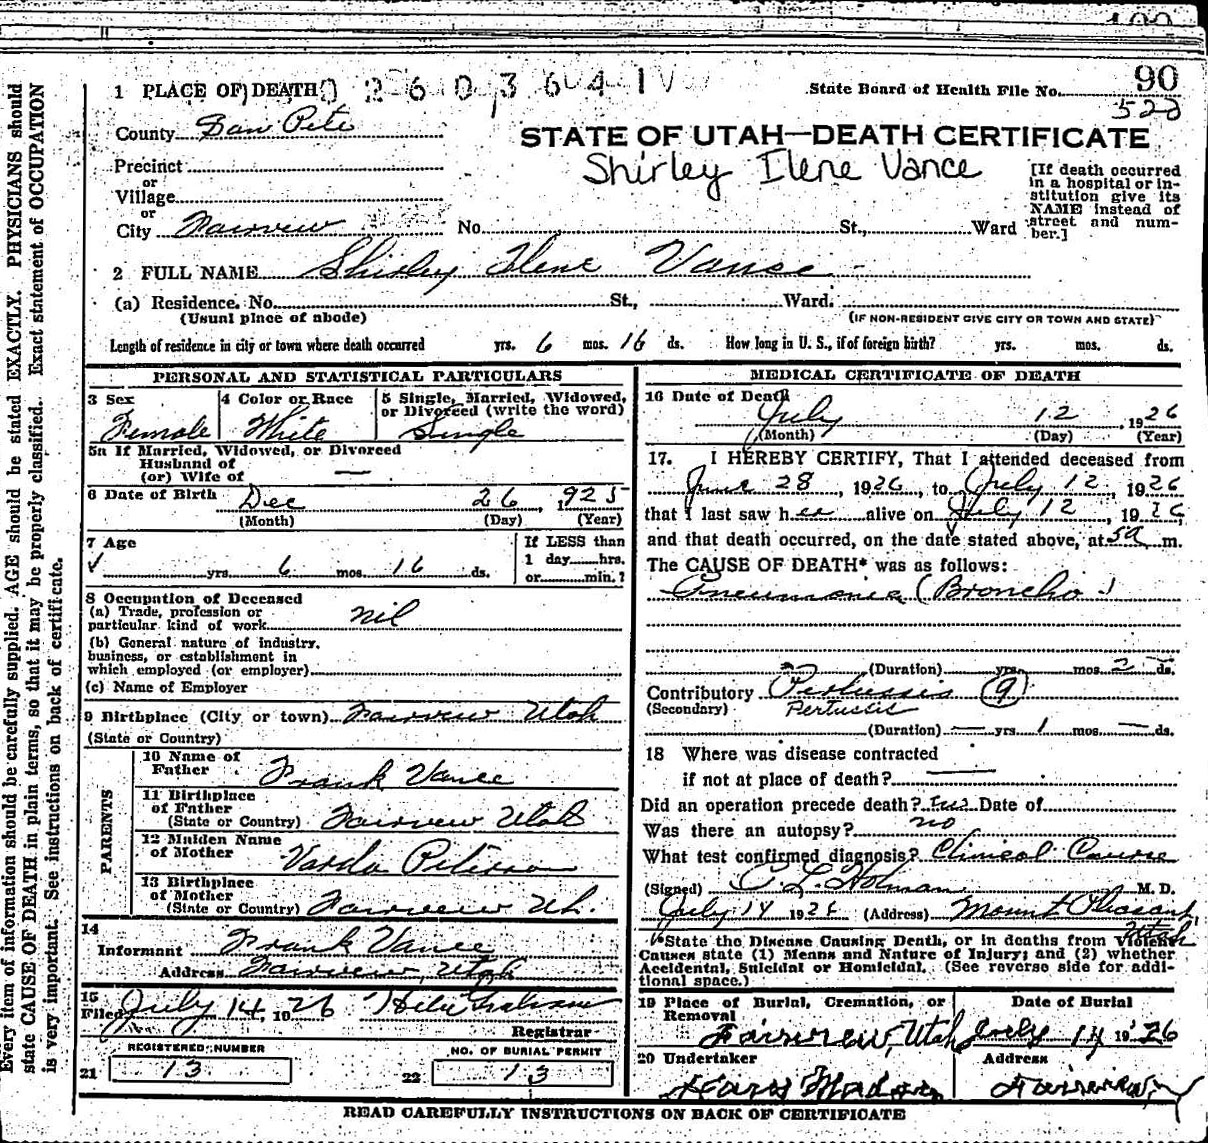 90
1 PLACE OF DEATH
State Board of Health File No.
County San Pete
STATE OF UTAH—DEATH CERTIFICATE
Precinct
Shirley Ilene Vance
[If death occurred
in a hospital or in-
stitution give its
NAME instead of
street and num-
ber.]
or
Village
or
City Fairview No. St., Ward
2 FULL NAME Shirley Ilene Vance
(a) Residence. No. St., Ward.
(Usual place of abode) (IF NON-RESIDENT GIVE CITY OR TOWN AND STATE)
Length of residence in city or town where death occurred yrs. 6 mos. 16 ds. How long in U. S., if of foreign birth? yrs. mos. ds.
PERSONAL AND STATISTICAL PARTICULARS
3 Sex 4 Color or Race 5 Single, Married, Widowed,
or Divorced (write the word)
Female White Single
5a If Married, Widowed, or Divorced
Husband of
(or) Wife of —
6 Date of Birth Dec 26, 1925
(Month) (Day) (Year)
7 Age If LESS than
1 day hrs.
or min.?
yrs. 6 mos. 16 ds.
8 Occupation of Deceased
(a) Trade, profession or
particular kind of work nil
(b) General nature of industry,
business, or establishment in
which employed (or employer)
(c) Name of Employer
9 Birthplace (City or town) Fairview Utah
(State or Country)
PARENTS
10 Name of
Father Frank Vance
11 Birthplace
of Father
(State or Country) Fairview Utah
12 Maiden Name
of Mother Varda Peterson
13 Birthplace
of Mother
(State or Country) Fairview Ut.
14
Informant Frank Vance
Address Fairview, Utah
15
Filed July 14, 1926
Registrar
REGISTERED NUMBER NO. OF BURIAL PERMIT
21 13 22 13
MEDICAL CERTIFICATE OF DEATH
16 Date of Death
July 12, 1926
(Month) (Day) (Year)
17. I HEREBY CERTIFY, That I attended deceased from
June 28, 1926, to July 12, 1926
that I last saw her alive on July 12, 1926,
and that death occurred, on the date stated above, at 5a m.
The CAUSE OF DEATH* was as follows:
Pneumonia (Broncho)
(Duration) yrs. mos. 2 ds.
Contributory Pertussis 9
(Secondary) Pertussis
(Duration) — yrs. 1 mos. — ds.
18 Where was disease contracted
if not at place of death? —
Did an operation precede death? no Date of
Was there an autopsy? no
What test confirmed diagnosis? Clinical Course
(Signed) C L Holman M. D.
July 14 1926 (Address) Mount Pleasant,
Utah
*State the Disease Causing Death, or in deaths from Violent
Causes state (1) Means and Nature of Injury; and (2) whether
Accidental, Suicidal or Homicidal. (See reverse side for addi-
tional space.)
19 Place of Burial, Cremation, or Date of Burial
Removal
Fairview, Utah July 14 1926
20 Undertaker Address
Fairview
READ CAREFULLY INSTRUCTIONS ON BACK OF CERTIFICATE
Every item of information should be carefully supplied. AGE should be stated EXACTLY. PHYSICIANS should
state CAUSE OF DEATH in plain terms, so that it may be properly classified. Exact statement of OCCUPATION
is very important. See instructions on back of certificate.